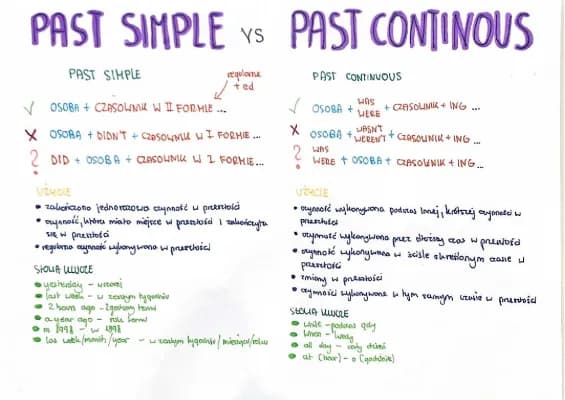 PAST SIMPLE VS PAST CONTINOUS
PAST SIMPLE
regularne
+ ed
OSOBA + CZASOWNIK W II FORMIE ...
OSOBA + DIDN'T + CZASOWNIK W I FORMIE ...
DID + OSOBA + CZASOWNIK W I FORMIE ...
UŻYCIE
• zakończono jednorazowa czynność w przeszłości
• czynność, która miała miejsce w przeszłości i zakończyła
się w przeszłości
• regularna czynność wykonywana w przeszłości
SŁOWA KLUCZE
yesterday - wczoraj
last week - w zeszłym tygodniu
2 hours ago - 2 godziny temu
a year ago - rok temu
in 1998 - w 1998
las week/month/year - w zeszłym tygodniu/miesiącu/roku
PAST CONTINUOUS
OSOBA + WAS
WERE + CZASOWNIK + ING ...
OSOBA + WASN'T
WEREN'T + CZASOWNIK + ING ...
WAS
WERE + OSOBA + CZASOWNIK + ING ...
UŻYCIE
• czynność wykonywana podczas innej, krótszej czynności w
przeszłości
• czynność wykonywana przez dłuższy czas w przeszłości
• czynność wykonywana w ściśle określonym czasie w
przeszłości
• zmiany w przeszłości
• czynności wykonywane w tym samym czasie w przeszłości
SŁOWA KLUCZE
while - podczas gdy
when - kiedy
all day - cały dzień
at (hour) - o (godzinie)